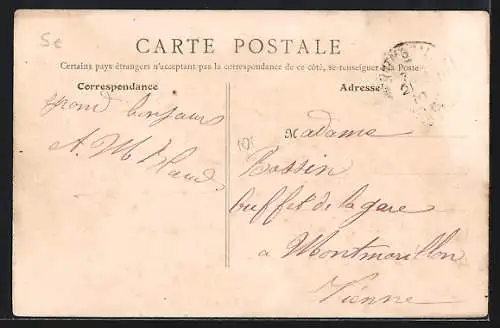 5e
CARTE POSTALE
Certains pays étrangers n'acceptant pas la correspondance de ce côté, se renseigner à la Poste
Correspondance
Adresse
grand bonjour
A. M
101
Madame
Rossin
buffet de la gare
a Montmorillon
Vienne